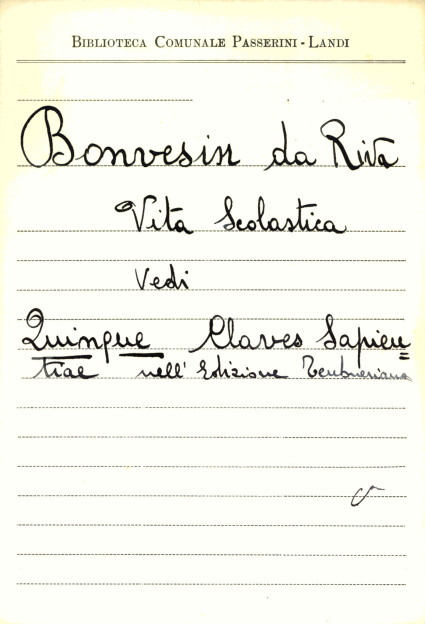 BIBLIOTECA COMUNALE PASSERINI - LANDI
Bonvesin da Riva
Vita Scolastica
Vedi
Quinque Claves Sapien=
tiae nell' Edizione Teubneriana